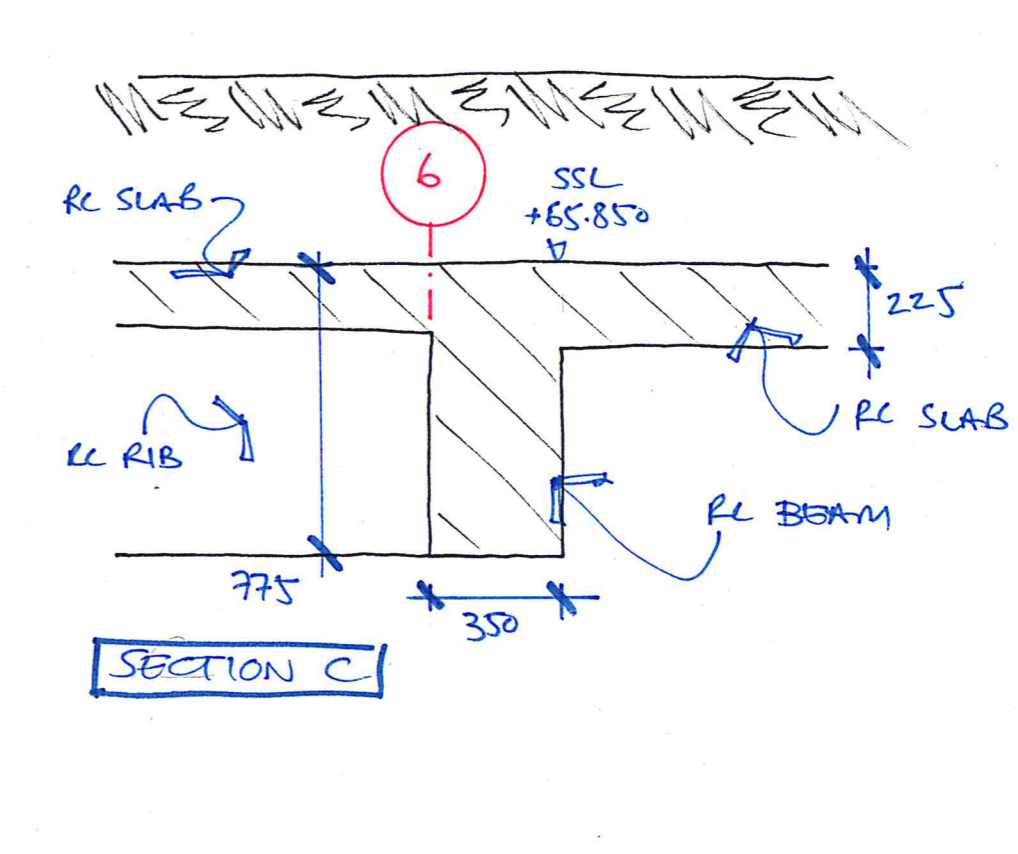 6
SSL
+65.850
RC SLAB
225
RC SLAB
RC RIB
RC BEAM
775
350
SECTION C